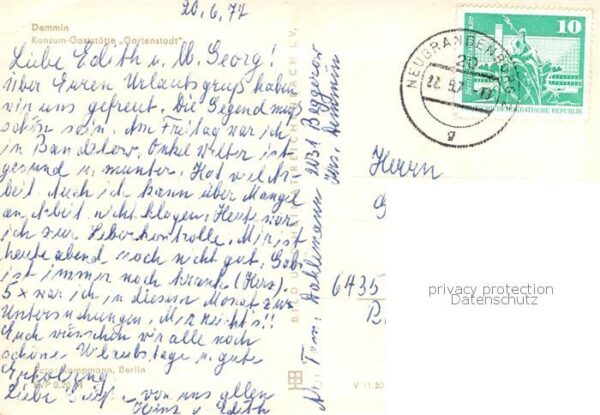 20.6.77
Demmin
Konsum-Gaststätte "Gartenstadt"
Liebe Edith u. M. Georg!
Über Euren Urlaubsgruß haben
wir uns gefreut. Die Gegend muß
schön sein. Am Freitag war ich
in Bandelow. Onkel Walter ist
gesund u. munter. Hat viel Ar-
beit. Auch ich kann über Mangel
an Arbeit nicht klagen. Heute war
ich zur Leberkontrolle. Mir ist
heute abend noch nicht gut.
ist immer noch krank (Herz).
5 x war ich in diesem Monat zur
Untersuchungen. Mir reicht's!!
Euch wünschen wir alle noch
schöne Urlaubstage u. gute
Erholung
Liebe Grüße von uns allen
Heinz u. Edith
Foto: Kampmann, Berlin
V 11 50
BILD UND HEIMAT REICHENBACH I. V.
Abs. Fam. Dahlemann 2031 Beggerow
Krs. Demmin
NEUBRANDENBURG
20
22.6.7
g
10
DEUTSCHE DEMOKRATISCHE REPUBLIK
Herrn
6435
privacy protection
Datenschutz